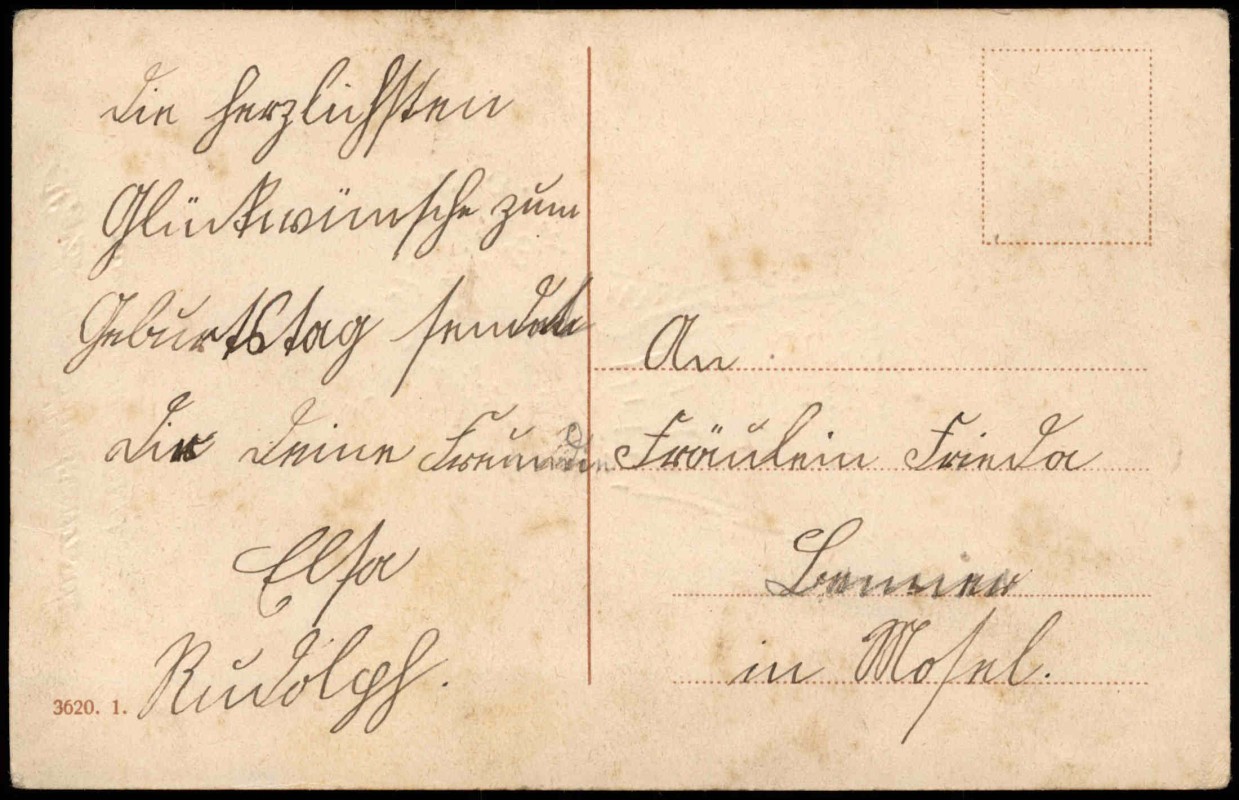 Die herzlichsten
Glückwünsche zum
Geburtstag sendet
Dir Deine Freundin
Elsa
Rudolph.
3620. 1.
An
Fräulein Frieda
in Mosel.